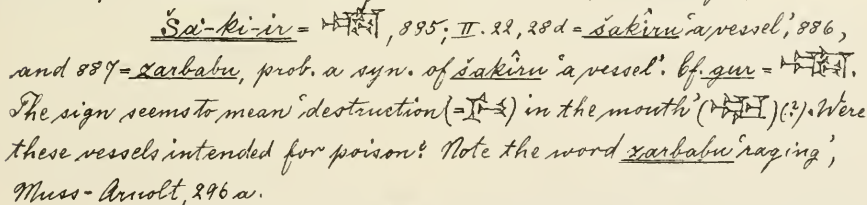 Šá-ki-ir = , 895; II. 22, 28d = šakîru 'a vessel', 886,
and 887 = zarbabu, prob. a syn. of šakîru 'a vessel'. Cf. gur = .
The sign seems to mean 'destruction (= ) in the mouth' ( ) (?). Were
these vessels intended for poison? Note the word zarbabu 'raging',
Muss-Arnolt, 296 a.